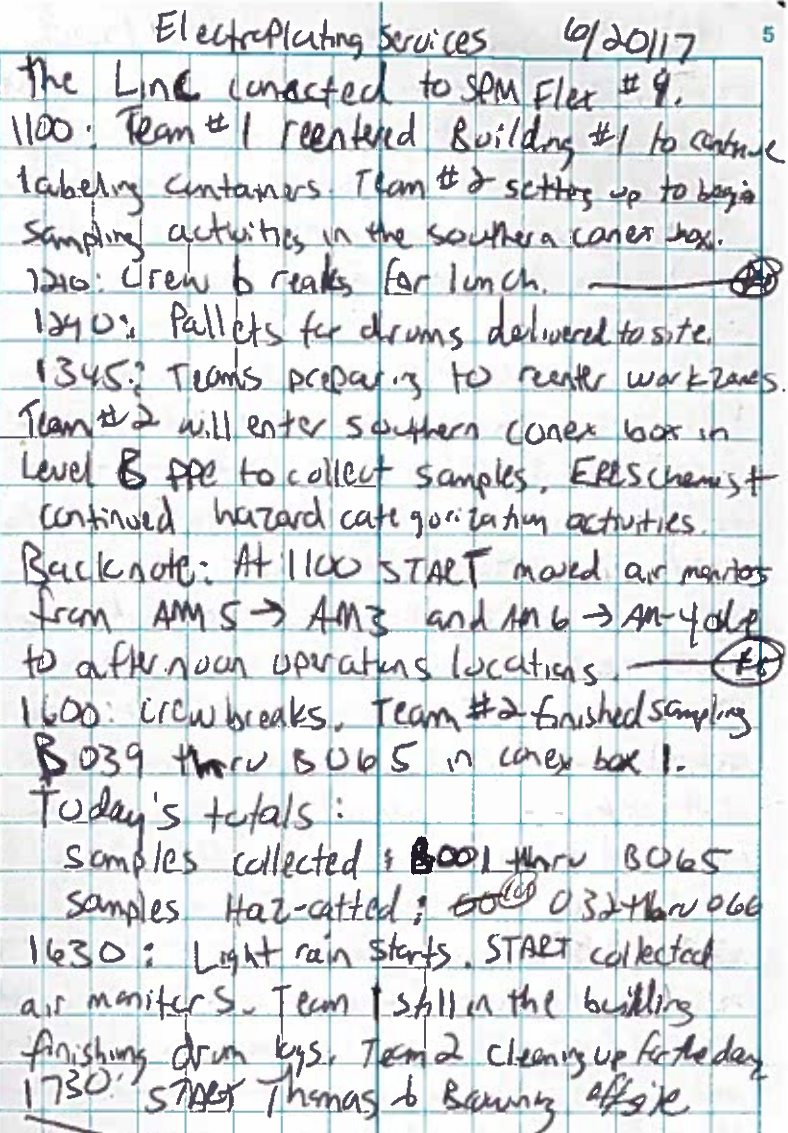 Electroplating Services 6/20/17 5
the Line conected to SPM Flex # 9.
1100: Team # 1 reentered Building #1 to continue
labeling containers. Team #2 setting up to begin
sampling activities in the southern conex box.
1210: Crew breaks for lunch.
1240: Pallets for drums delivered to site.
1345: Teams preparing to reenter work zones.
Team #2 will enter southern conex box in
Level B PPE to collect samples. ERRS chemist
continued hazard categorization activities.
Backnote: At 1100 START moved air monitors
from AM 5 → AM3 and AM 6 → AM-4 due
to afternoon operations locations.
1600: Crew breaks. Team #2 finished sampling
B039 thru B065 in conex box 1.
Today's totals:
Samples collected: B001 thru B065
Samples Haz-catted: 032 thru 066
1630: Light rain starts. START collected
air monitors. Team 1 still in the building
finishing drum logs. Team 2 cleaning up for the day
1730: START Thomas & Browning offsite